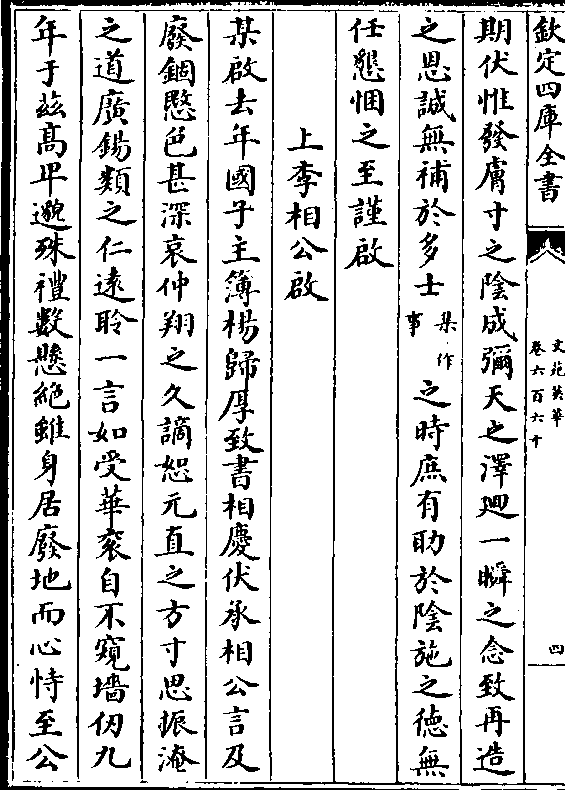 欽定四庫全書
文苑英華
卷六百六十
四
期伏惟發膚寸之陰成彌天之澤迴一瞬之念致再造
之恩誠無補於多士集作事之時庶有助於陰施之徳無
任懇悃之至謹啟
上李相公啟
某啟去年國子主簿楊歸厚致書相慶伏承相公言及
廢錮愍色甚深哀仲翔之久謫恕元直之方寸思振淹
之道廣錫類之仁逺聆一言如受華衮自不窺墻仭九
年于兹髙卑邈殊禮數懸絶雖身居廢地而心恃至公